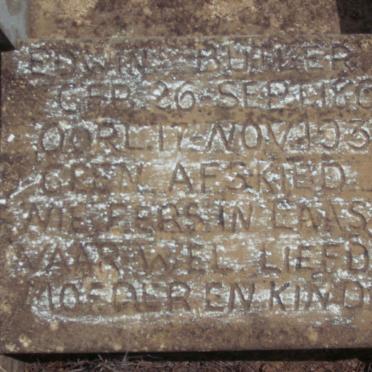 EDWIN BUTLER
GEB. 26 SEPT. 18
OORL. 17 NOV. 193
GEEN AFSKIED
NIE EERS IN LAAS
VAARWEL LIEFD
MOEDER EN KIND